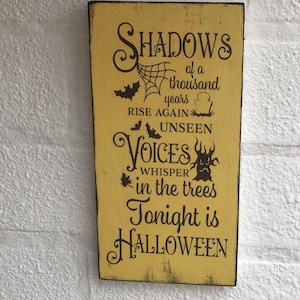 SHADOWS
of a
thousand
years
RISE AGAIN
UNSEEN
VOICES
WHISPER
in the trees
Tonight is
HALLOWEEN